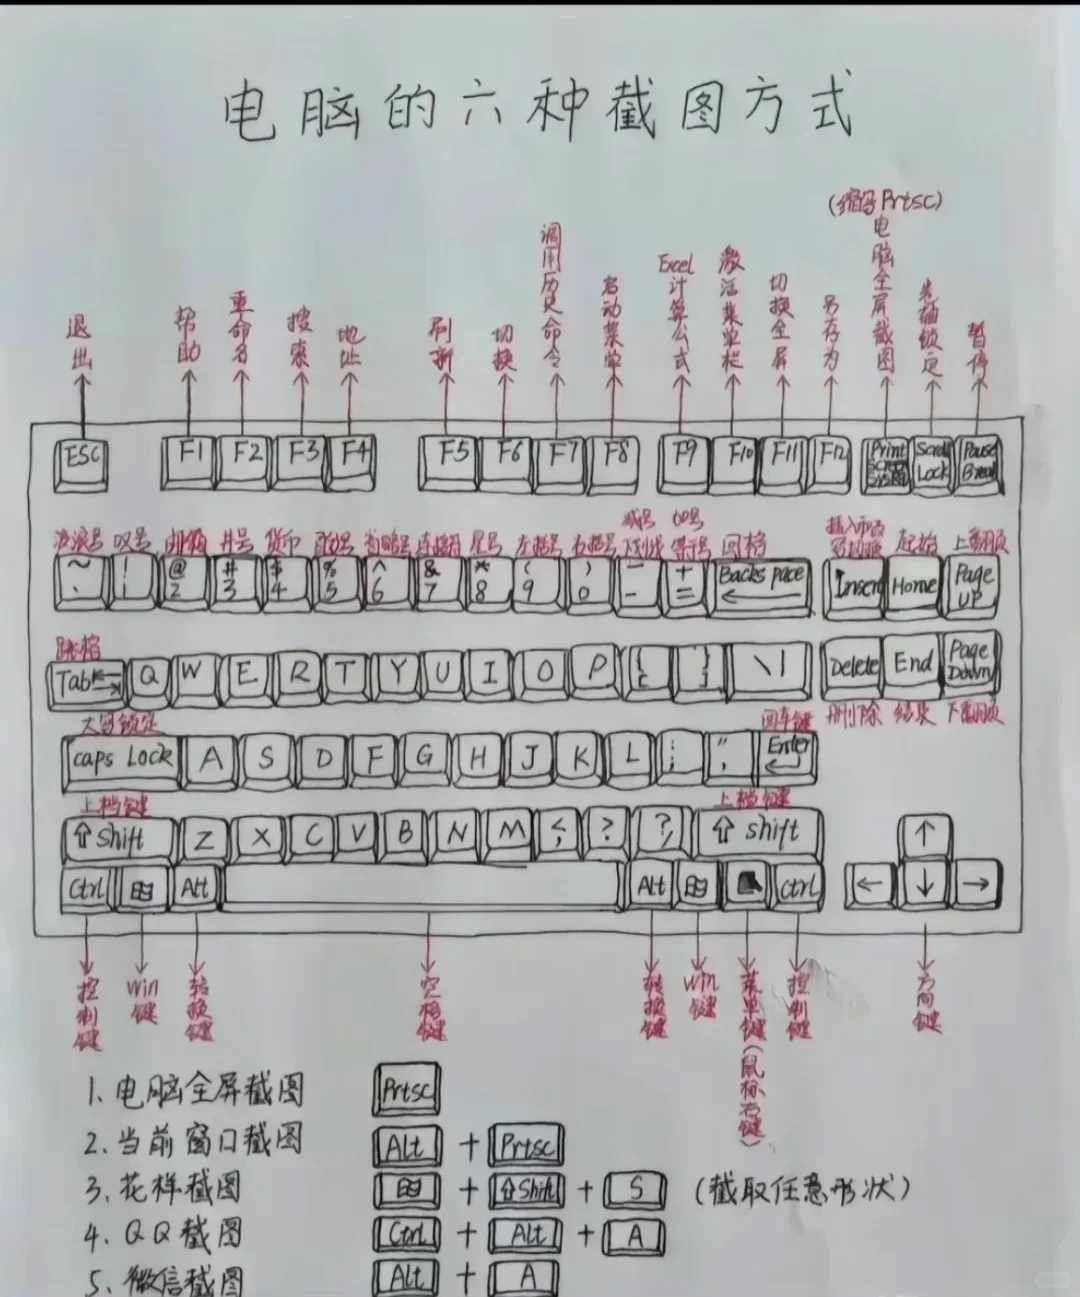 电脑的六种截图方式
(缩写Prtsc)
退出
帮助
重命名
搜索
地址
刷新
切换
调用历史命令
启动菜单
Excel计算公式
激活菜单栏
切换全屏
另存为
电脑全屏截图
锁定
暂停
ESC F1 F2 F3 F4 F5 F6 F7 F8 F9 F10 F11 F12 Print Screen SysRq Scroll Lock Pause Break
减号 加号
波浪号 叹号 邮箱 井号 货币 百分号 省略号 连接符 星号 左括号 右括号 下划线 等号 退格 起始 上翻页
~ ! @ # $ % ^ & * ( ) — +
· 1 2 3 4 5 6 7 8 9 0 - = Backspace ← Insert Home Page UP
跳格
Tab Q W E R T Y U I O P { [ } ] \ | Delete End Page Down
大写锁定 回车键 删除 结束 下翻页
caps Lock A S D F G H J K L ; " , Enter
上档键 上档键
⇧ shift Z X C V B N M < , ? ? , ⇧ shift ↑
Ctrl Alt Alt Ctrl ← ↓ →
控制键
Win键
转换键
空格键
转换键
Win键
菜单键(鼠标右键)
控制键
方向键
1、电脑全屏截图 Prtsc
2、当前窗口截图 Alt + Prtsc
3、花样截图 田 + ⇧Shift + S (截取任意形状)
4、QQ截图 Ctrl + Alt + A
5、微信截图 Alt + A